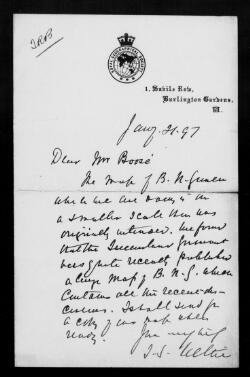 1, Savile Row,
Burlington Gardens,
W.
Jany. 21. 97
Dear Mr Boosé
The Map of B. N. Guinea
which we are doing is on
a smaller scale than was
originally intended. We found
that the Queensland Government
has quite recently published
a large Map of B. N. G. which
contains all the recent dis-
coveries. I shall send for
a copy of our map when
ready.
J. S. Keltie